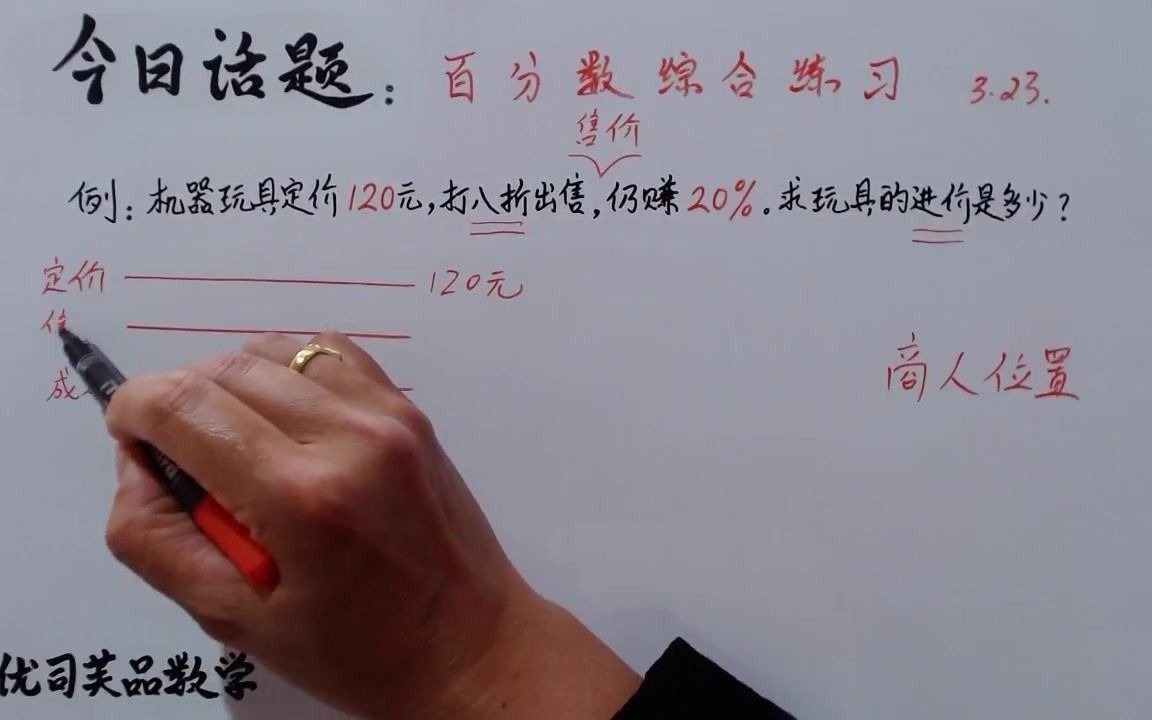 今日话题：百分数综合练习 3.23.
售价
例：机器玩具定价120元，打八折出售，仍赚20%。求玩具的进价是多少？
定价 120元
成
商人位置
优司芙品数学